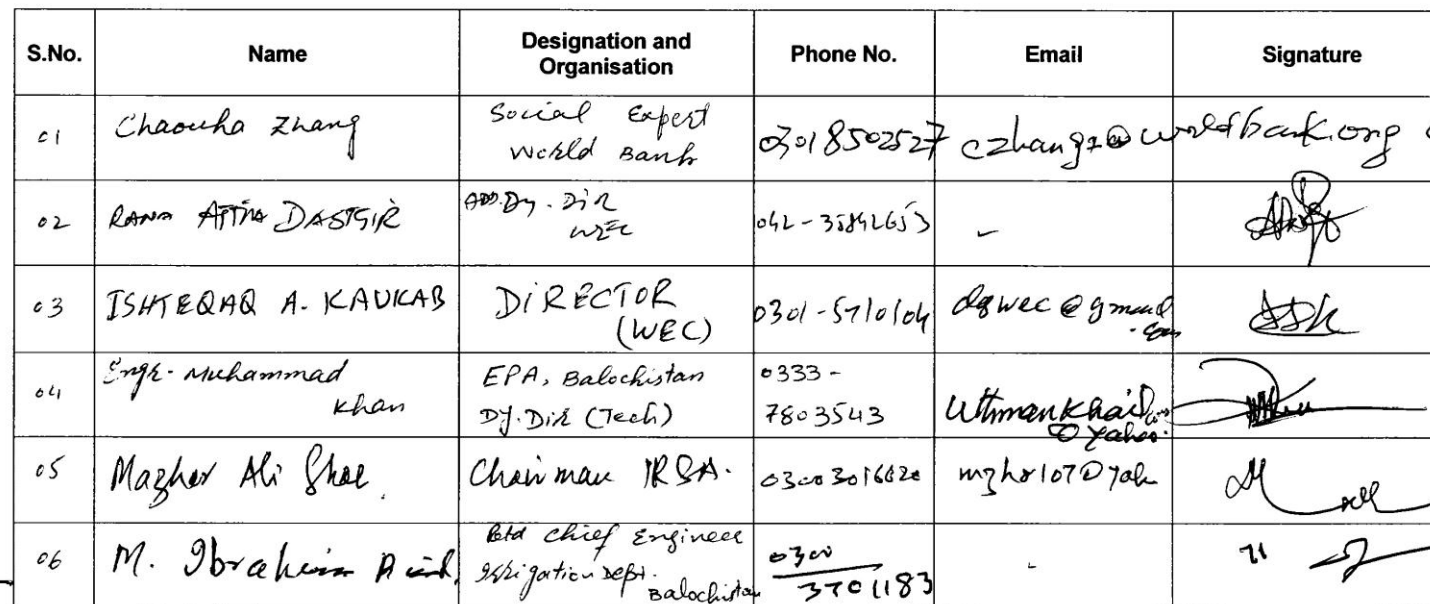 S.No. Name Designation and Organisation Phone No. Email Signature
01 Chaouha Zhang Social Expert World Bank 03018502527 czhang2@worldbank.org
02 RANA ATTIA DASTGIR ADD.Dy. Dir WEC 042-35842653 -
03 ISHTEQAQ A. KAUKAB DIRECTOR (WEC) 0301-5710104 dgwec@gmail.com
04 Engr. Muhammad Khan EPA, Balochistan Dy. Dir (Tech) 0333-7803543
05 Mazhar Ali Shah Chairman IRSA. 03003016620
06 M. Ibrahim Retd Chief Engineer Irrigation Dept. Balochistan 0300 3701183 -